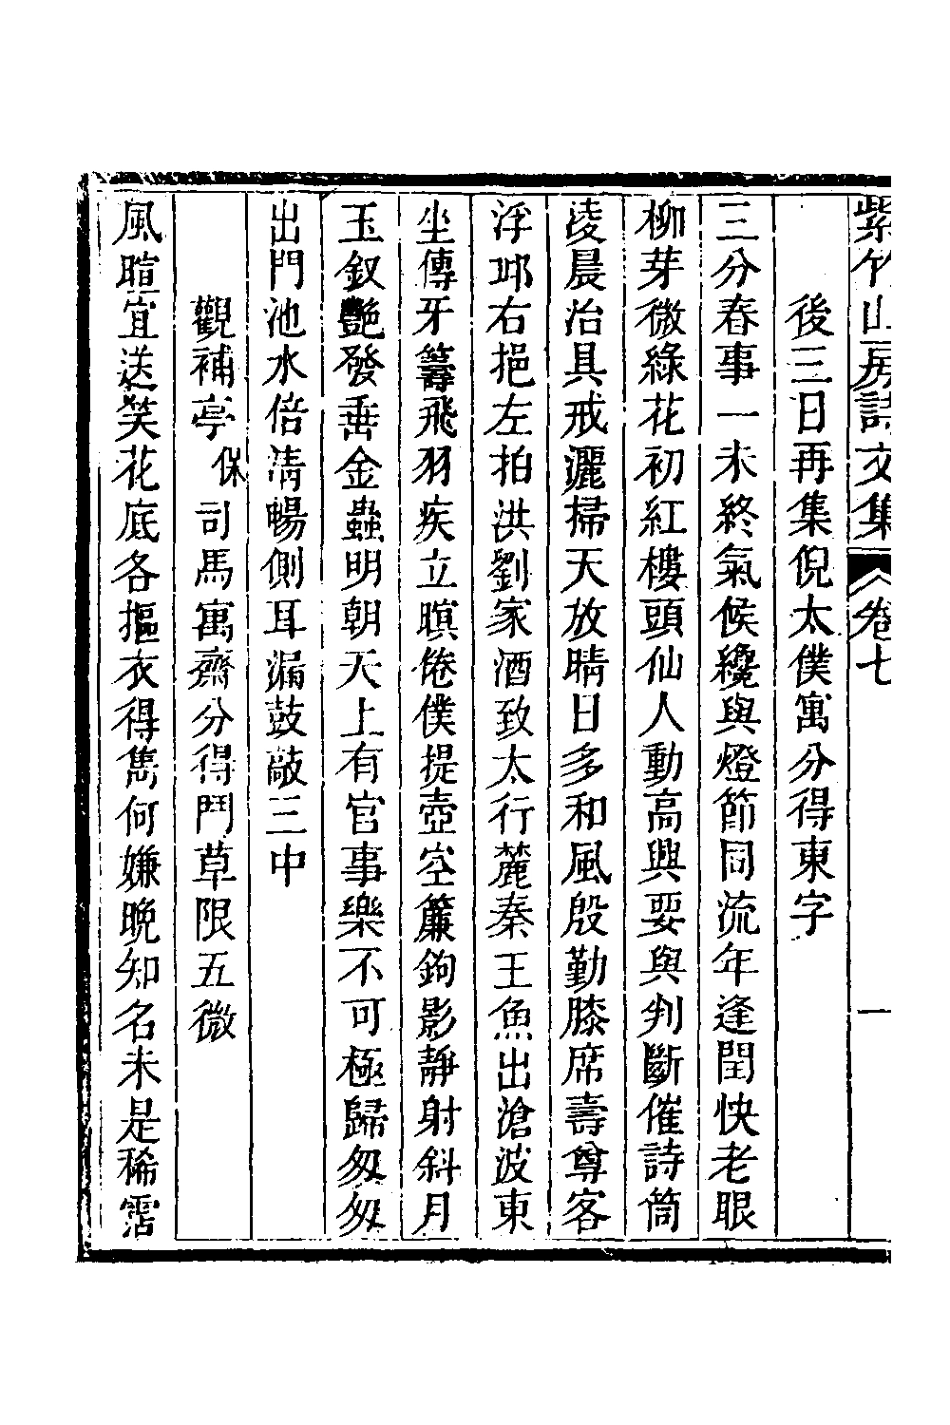 紫竹山房詩文集 卷七 一
後三日再集倪太僕寓分得東字
三分春事一未終氣候纔與燈節同流年逢閏快老眼
柳芽微綠花初紅樓頭仙人動高興要與判斷催詩筒
淩晨治具戒灑掃天放晴日多和風殷勤膝席壽尊客
浮邛右挹左拍洪劉家酒致太行麓秦王魚出滄波東
坐傳牙籌飛羽疾立瞑倦僕提壺空簾鉤影靜射斜月
玉釵艷發垂金蟲明朝天上有官事樂不可極歸匆匆
出門池水倍清暢側耳漏鼓敲三中
觀補亭保司馬寓齋分得鬥草限五微
風暄宜送笑花底各摳衣得雋何嫌晚知名未是稀霑